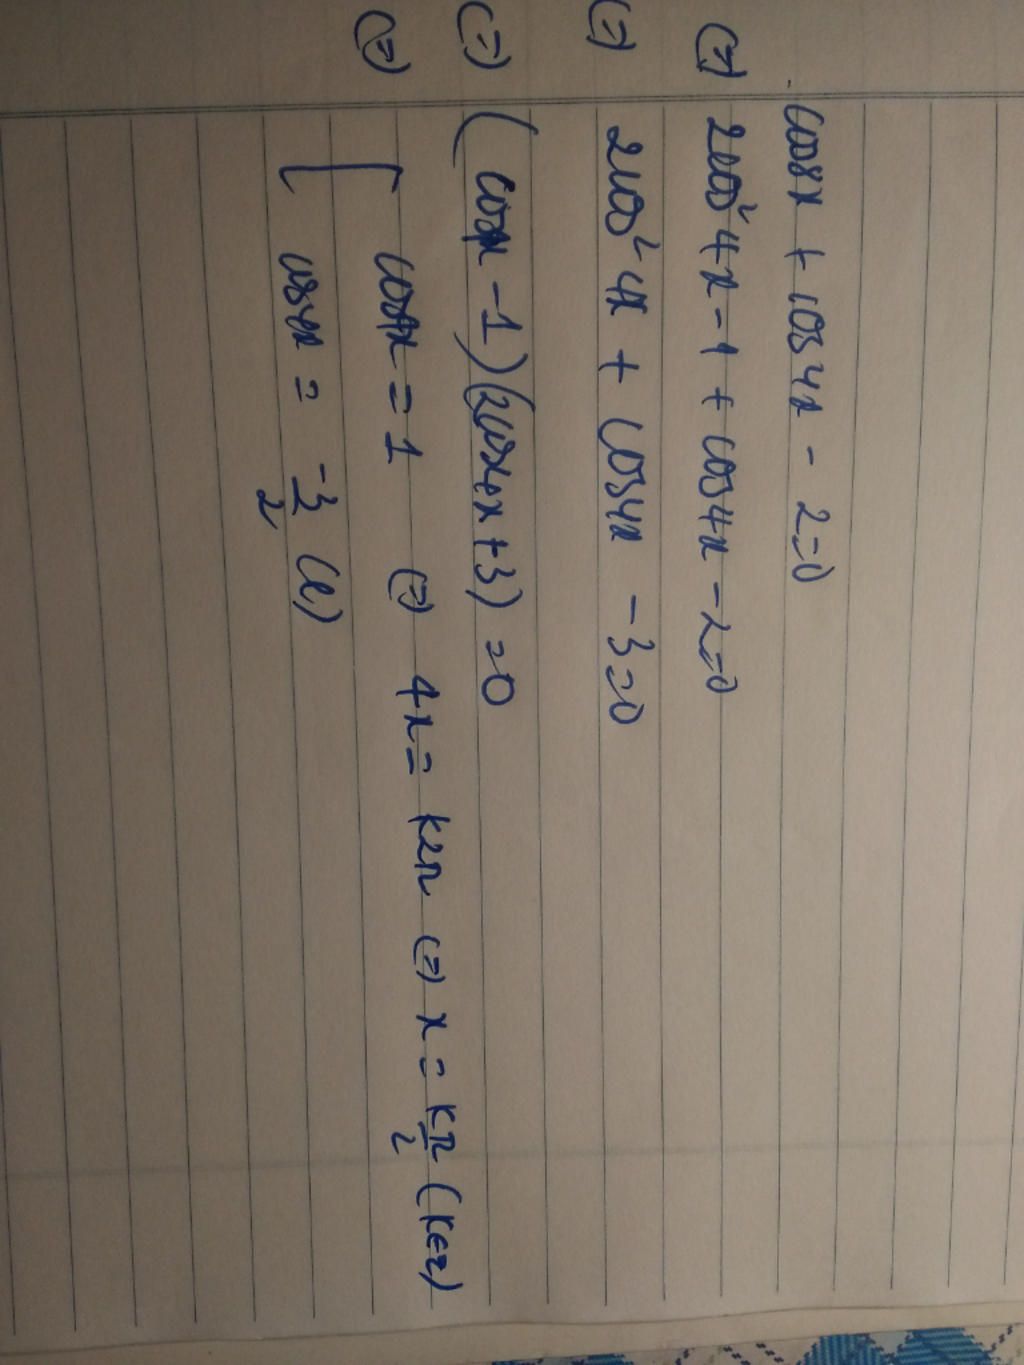 cos8x + cos4x - 2=0
(=) 2cos²4x - 1 + cos4x - 2=0
(=) 2cos²4x + cos4x - 3=0
(=) (cos4x - 1)(2cos4x + 3) = 0
(=) [ cos4x = 1 (=) 4x = k2π (=) x = kπ/2 (k∈Z)
cos4x = -3/2 (l)